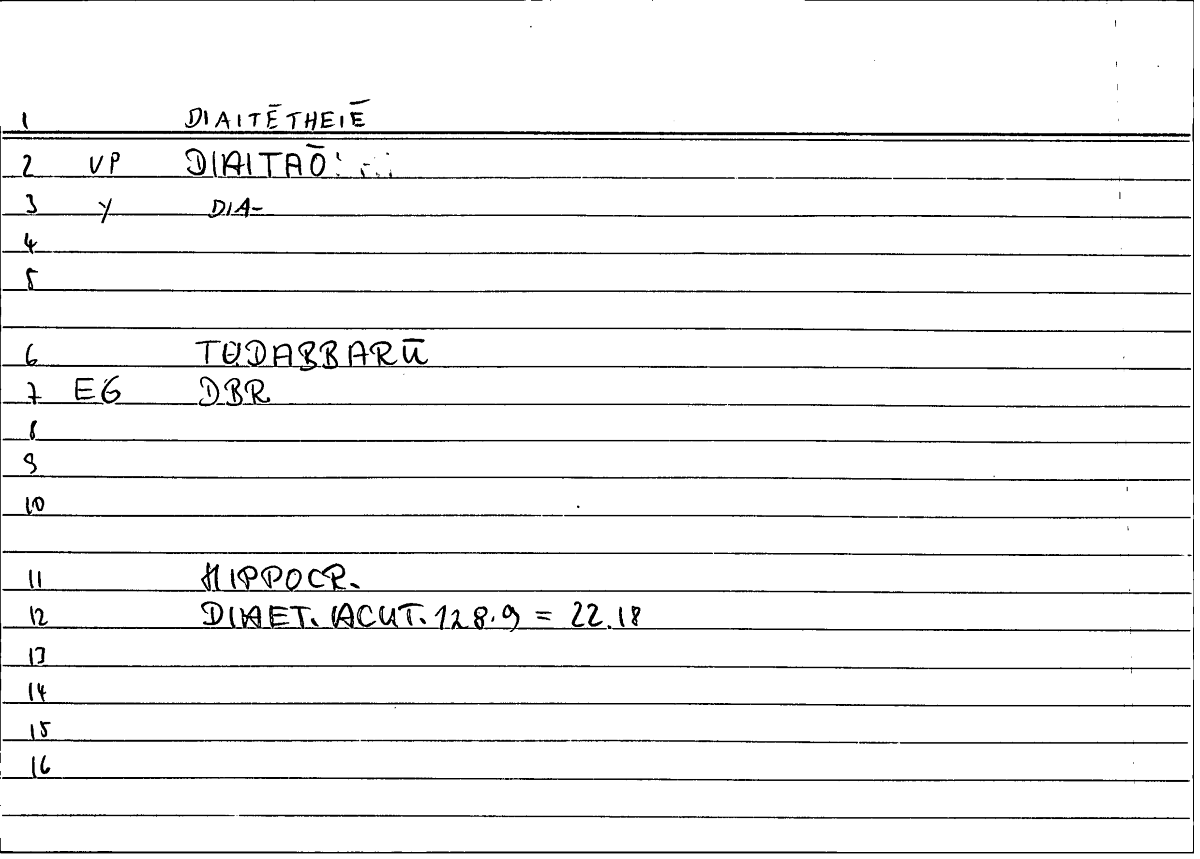 1 DIAITĒTHEIĒ
2 VP DIAITAŌ
3 Y DIA-
4
5
6 TUDABBARŪ
7 EG DBR
8
9
10
11 HIPPOCR.
12 DIAET. ACUT. 128.9 = 22.18
13
14
15
16